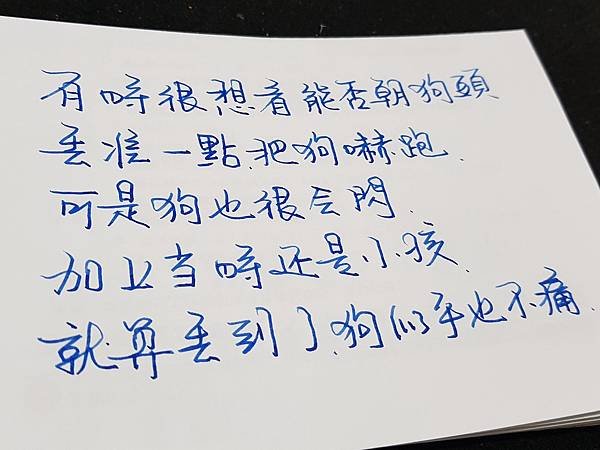 有時很想着能否朝狗頭
丢准一點.把狗嚇跑.
可是狗也很会閃.
加上当時还是小孩.
就算丢到了.狗似乎也不痛.